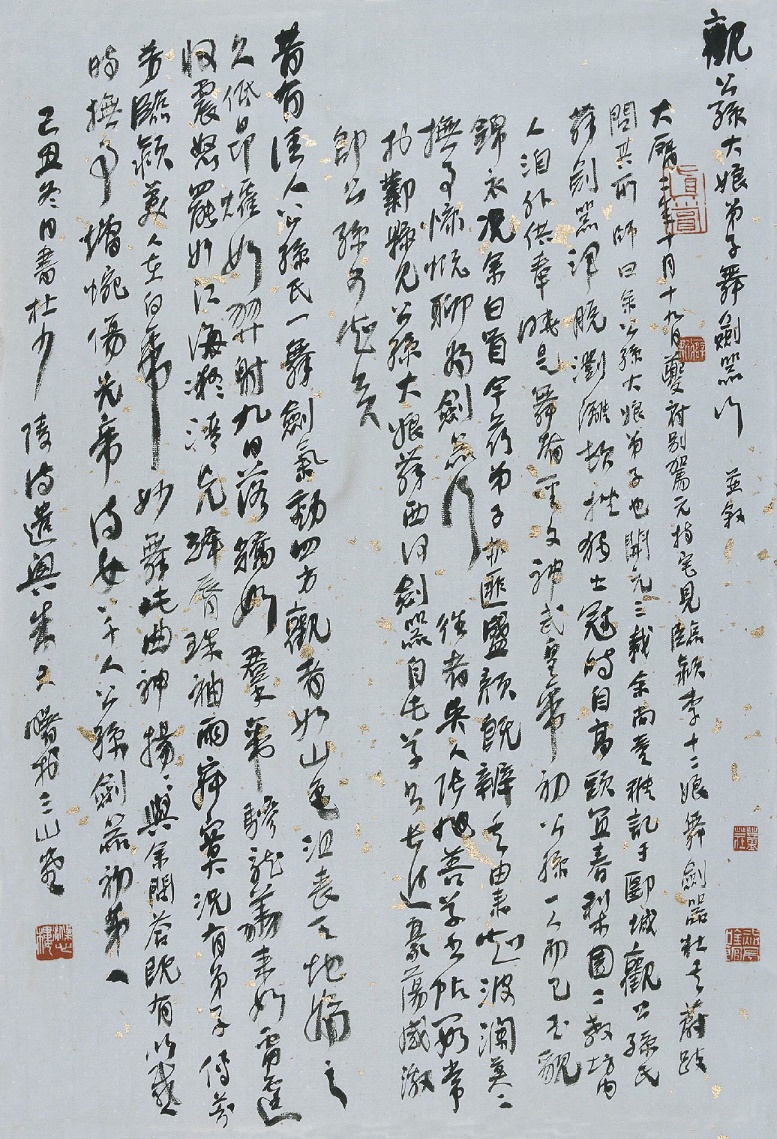 觀公孫大娘弟子舞劍器行 並敘
大曆二年十月十九日夔府別駕元持宅見臨潁李十二娘舞劍器壯其蔚跂
問其所師曰余公孫大娘弟子也開元三載余尚童稚記于郾城觀公孫氏
舞劍器渾脫瀏灕頓挫獨出冠時自高頭宜春梨園二教坊內
人洎外供奉曉是舞者聖文神武皇帝初公孫一人而已玉貌
錦衣況余白首今茲弟子亦匪盛顏既辨其由來知波瀾莫二
撫事慷慨聊為劍器行 往者吳人張旭善草書帖數常
於鄴縣見公孫大娘舞西河劍器自此草書長進豪蕩感激
即公孫可知矣
昔有佳人公孫氏一舞劍氣動四方觀者如山色沮喪天地為之
久低昂㸌如羿射九日落矯如羣帝驂龍翔來如雷霆
收震怒罷如江海凝清光絳脣珠袖兩寂寞況有弟子傳芬
芳臨潁美人在白帝妙舞此曲神揚揚與余問答既有以感
時撫事增惋傷先帝侍女八千人公孫劍器初第一
己丑冬日書杜少陵詩遣興 曙於三山